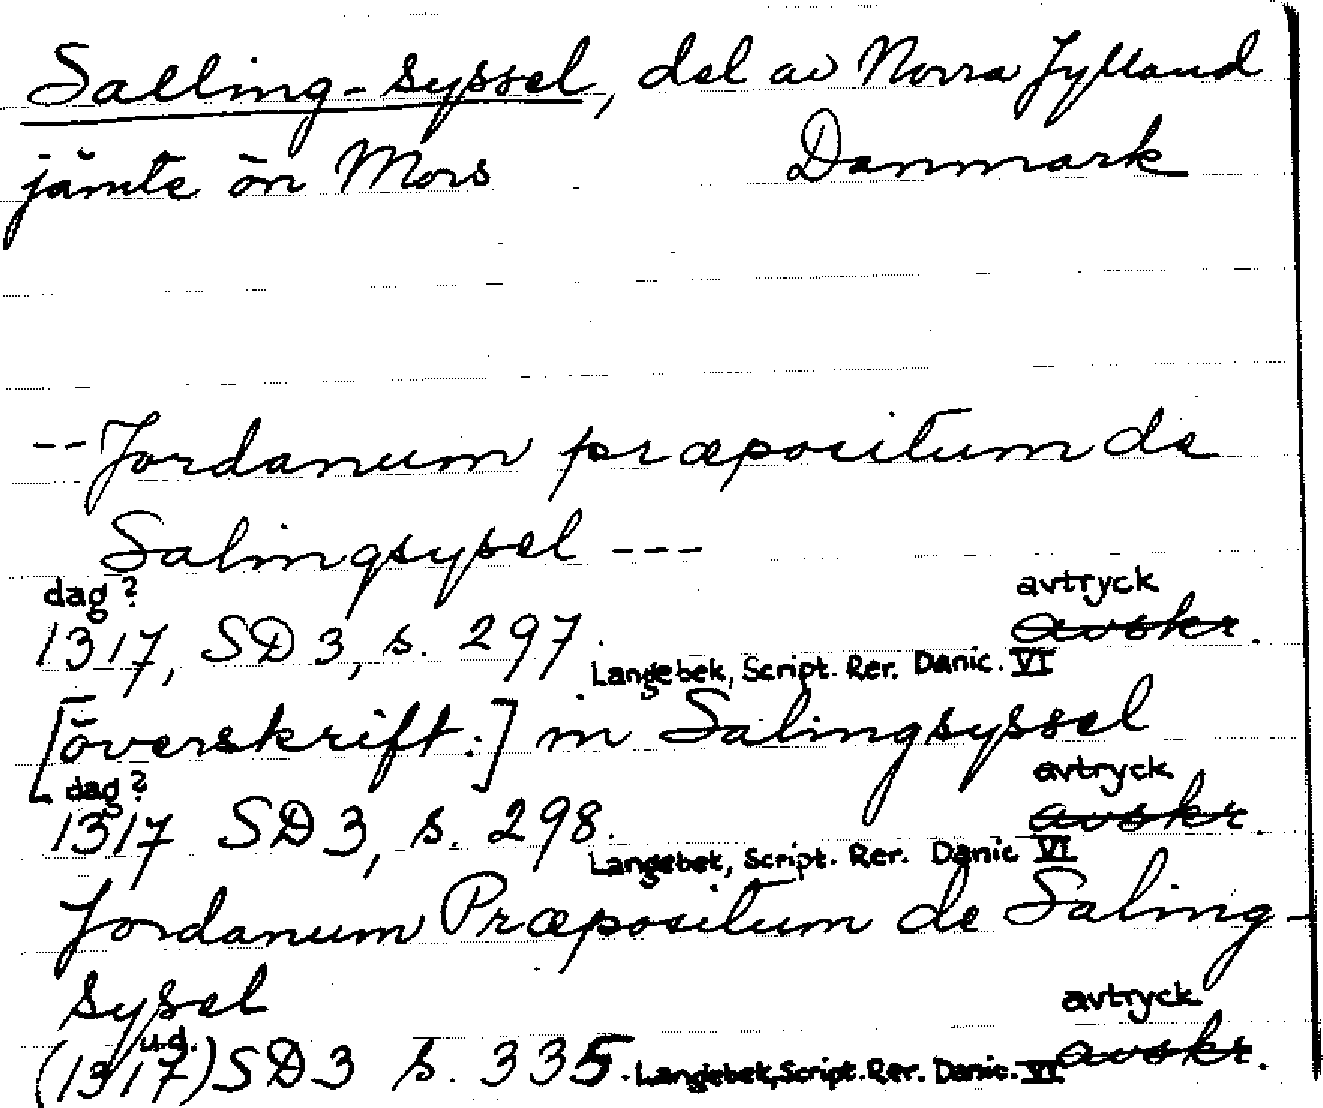 Salling-syssel, del av Norra Jylland
jämte ön Mors Danmark
-- Jordanum præpositum de
Salingsysel ---
dag? avtryck
1317, SD 3, s. 297. Langebek, Script. Rer. Danic. VI avskr.
[överskrift:] in Salingsyssel
dag? avtryck
1317 SD 3, s. 298. Langebek, Script. Rer. Danic VI avskr.
Jordanum Præpositum de Saling-
sysel avtryck
u.d.
(1317) SD 3 s. 335. Langebek, Script. Rer. Danic. VI avskr.